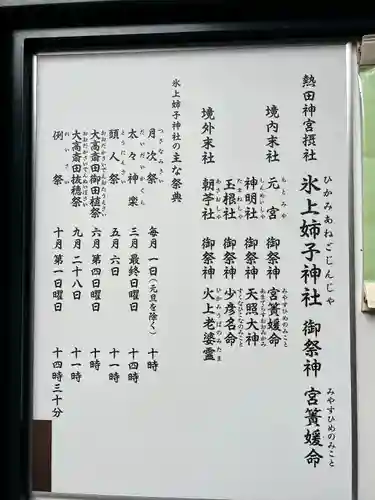 熱田神宮摂社 氷上姉子神社 御祭神 宮簀媛命
ひかみあねごじんじゃ みやすひめのみこと
境内末社 元宮 御祭神 宮簀媛命
もとみや みやすひめのみこと
神明社 御祭神 天照大神
しんめいしゃ あまてらすおおみかみ
玉根社 御祭神 少彦名命
たまねしゃ すくなひこなのみこと
境外末社 朝苧社 御祭神 火上老婆霊
あさおしゃ ひかみうばのみたま
氷上姉子神社の主な祭典
月次祭 毎月一日(元旦を除く) 十時
つきなみさい
太々神楽 三月最終日曜日 十四時
だいだいかぐら
頭人祭 五月六日 十一時
とうにんさい
大高斎田御田植祭 六月第四日曜日 十時
おおだかさいでんおたうえさい
大高斎田抜穂祭 九月二十八日 十一時
おおだかさいでんぬいぼさい
例祭 十月第一日曜日 十四時三十分
れいさい